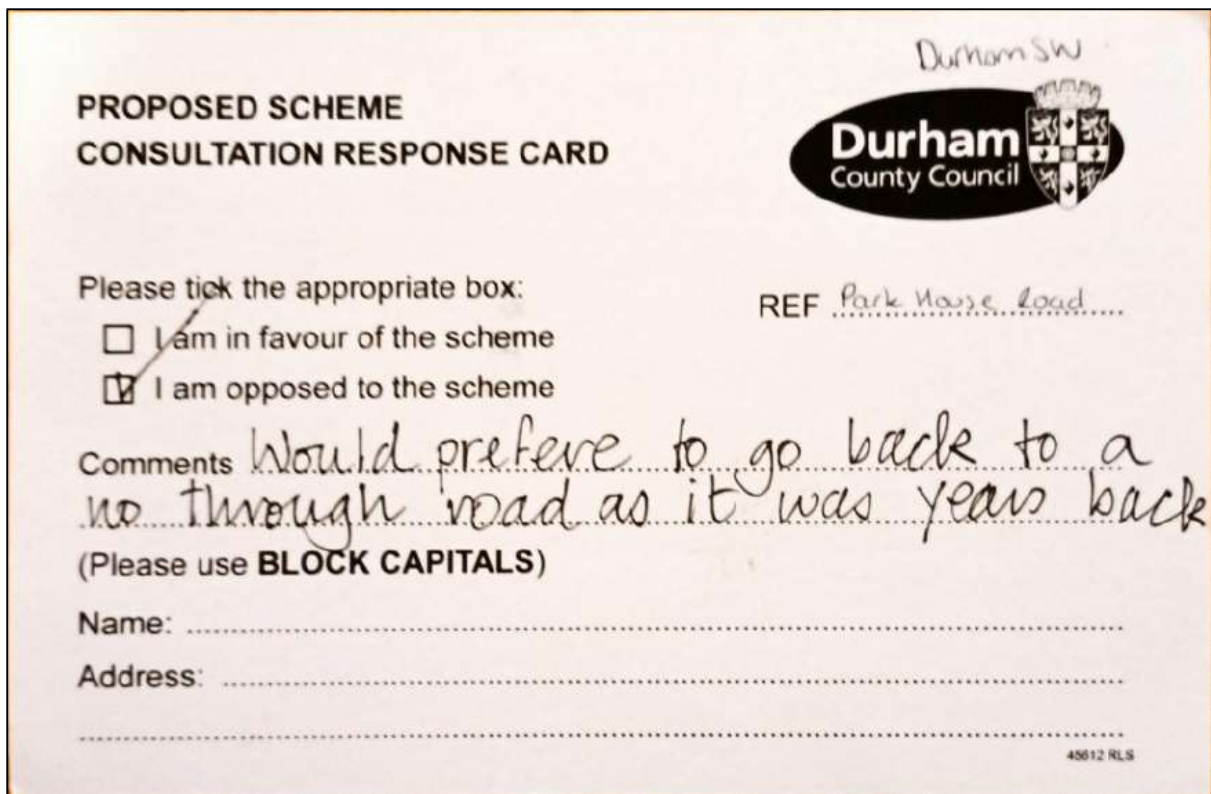 Durham SW
PROPOSED SCHEME
CONSULTATION RESPONSE CARD
Durham
County Council
Please tick the appropriate box:
REF Park House Road
I am in favour of the scheme
I am opposed to the scheme
Comments Would prefere to go back to a
no through road as it was years back
(Please use BLOCK CAPITALS)
Name:
Address:
45612 RLS